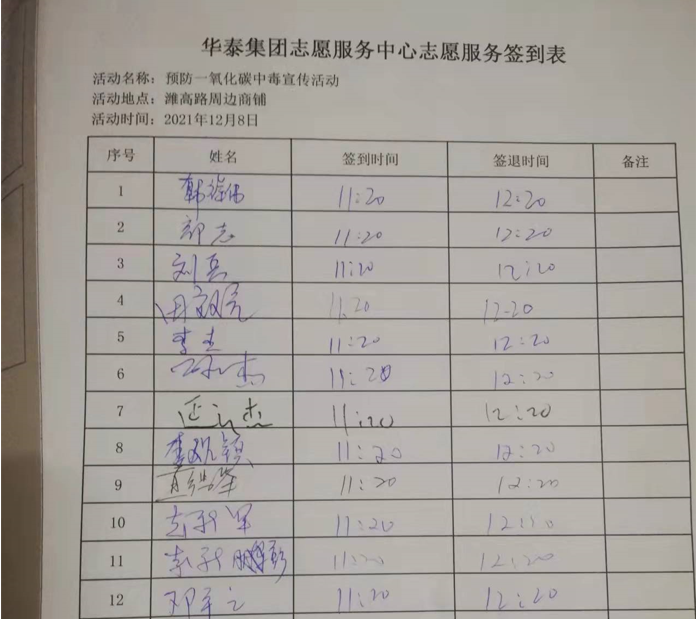 华泰集团志愿服务中心志愿服务签到表
活动名称：预防一氧化碳中毒宣传活动
活动地点：潍高路周边商铺
活动时间：2021年12月8日
序号 姓名 签到时间 签退时间 备注
1 11:20 12:20
2 志 11:20 12:20
3 刘兵 11:20 12:20
4 田 11.20 12-20
5 李杰 11:20 12:20
6 杰 11:20 12:20
7 杰 11:20 12:20
8 李 颖 11:20 12:20
9 11:20 12:20
10 军 11:20 12:20
11 11:20 12:20
12 邓军 11:20 12:20